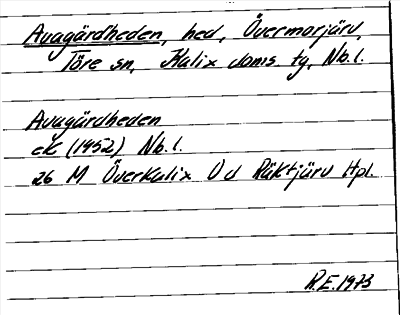 Avagärdheden, hed, Övermorjärv,
Töre sn, Kalix doms. tg, Nb.l.
Avagärdheden
eK (1952) Nb.l.
26 M Överkalix O d Räktjärv Hpl.
R.E. 1973